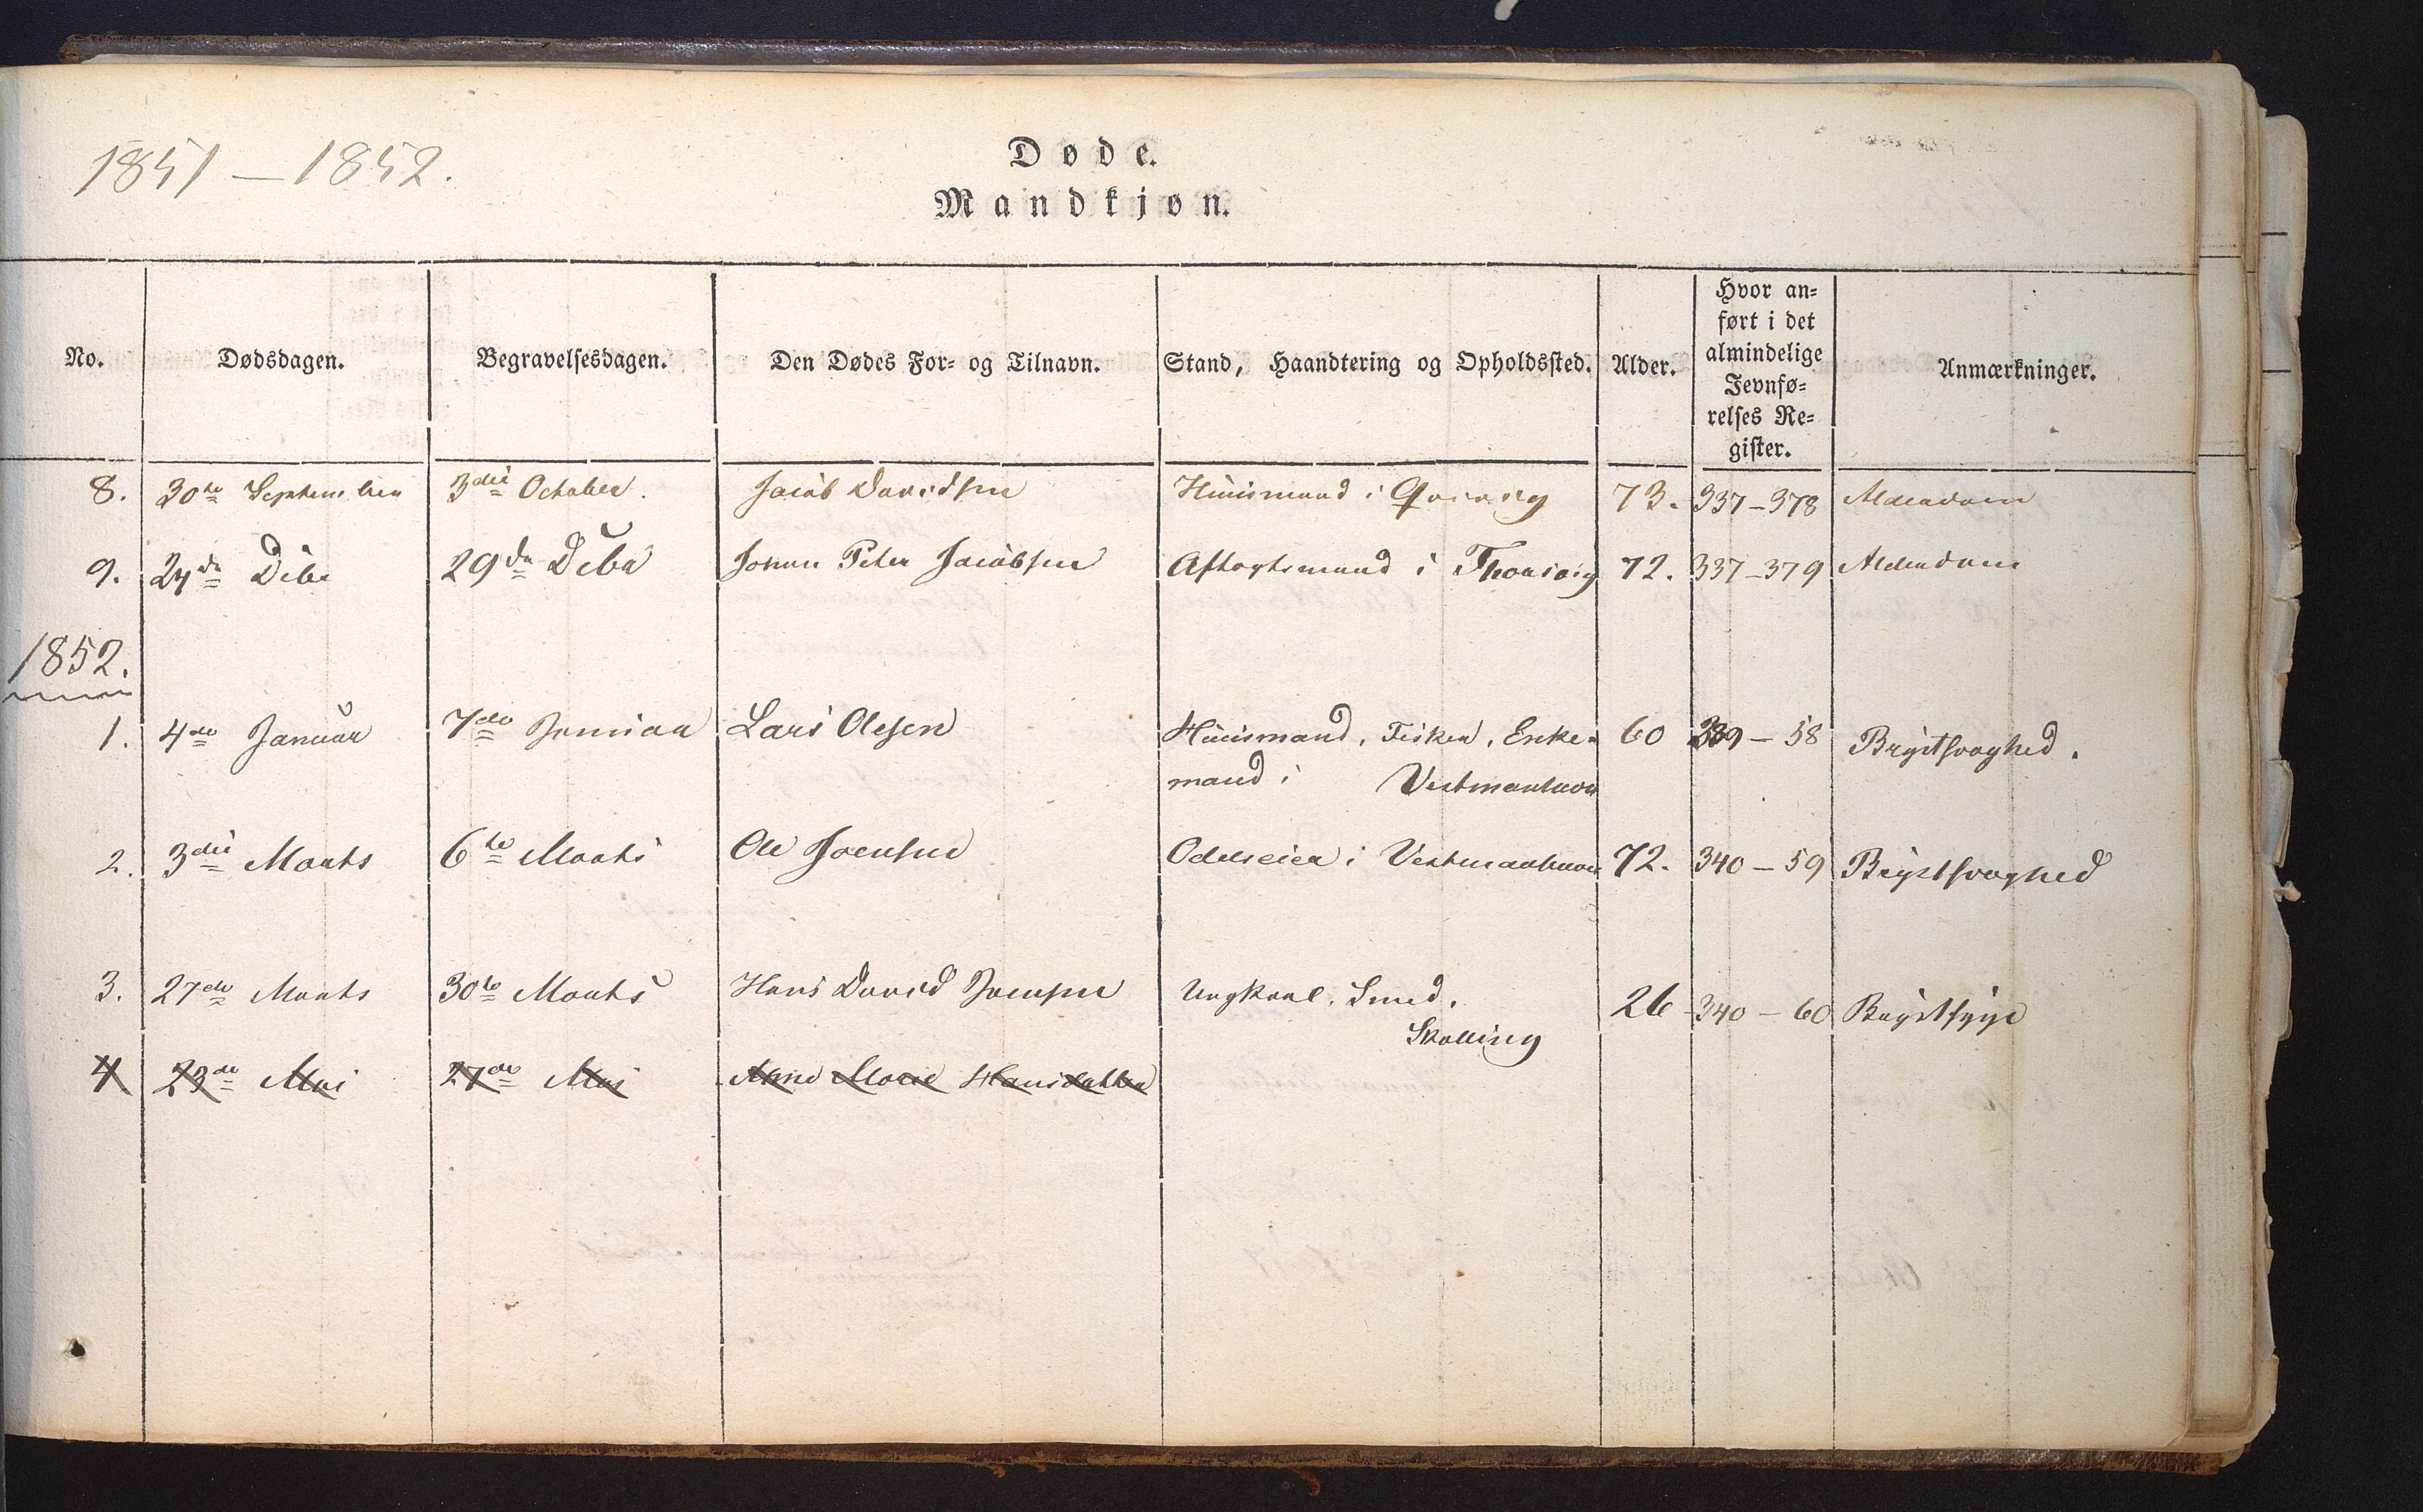 1851 — 1852.
Døde.
Mandkjøn.
No. Dødsdagen. Begravelsesdagen. Den Dødes For- og Tilnavn. Stand, Haandtering og Opholdssted. Alder. Hvor an-
ført i det
almindelige
Jevnfø-
relses Re-
gister. Anmærkninger.
8. 30te September 3die October. Jacob Davidsen Huusmand i Qvivig 73. 337-378 Alderdom
9. 24de Dcbr 29de Dcbr Johan Peter Jacobsen Aftægtsmand i Thorsvig 72. 337-379 Alderdom
1852.
1. 4de Januar 7de Januar Lars Olesen Huusmand, Fisker, Enke- 60 339 – 58 Brystsvaghed.
mand i Vestmanhavn
2. 3die Marts 6te Marts Ole Joensen Odelseier i Vestmanhavn 72. 340 – 59 Brystsvaghed
3. 27de Marts 30te Marts Hans David Joensen Ungkarl, Smed, 26 340 – 60 Brystsyge
Skælling
4 23de Mai 27de Mai Anne Marie Hansdatter